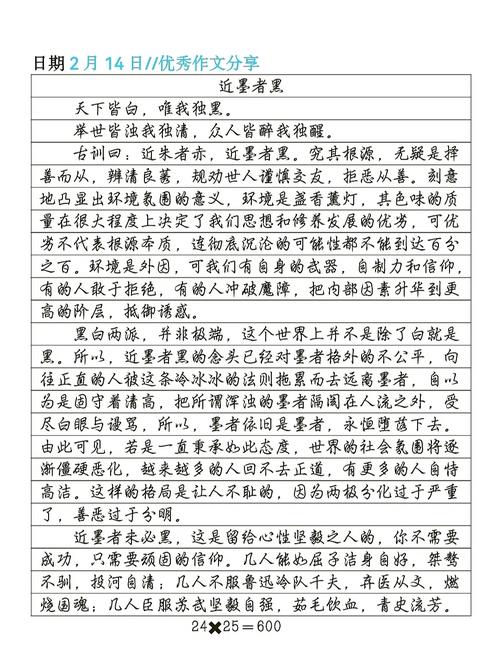 日期2月14日//优秀作文分享
近墨者黑
天下皆白，唯我独黑。
举世皆浊我独清，众人皆醉我独醒。
古训曰：近朱者赤，近墨者黑。究其根源，无疑是择
善而从，辨清良莠，规劝世人谨慎交友，拒恶从善。刻意
地凸显出环境氛围的意义，环境是盏香薰灯，其色味的质
量在很大程度上决定了我们思想和修养发展的优劣，可优
劣不代表根源本质，连彻底沉沦的可能性都不能到达百分
之百。环境是外因，可我们有自身的武器，自制力和信仰，
有的人敢于拒绝，有的人冲破魔障，把内部因素升华到更
高的阶层，抵御诱惑。
黑白两派，并非极端，这个世界上并不是除了白就是
黑。所以，近墨者黑的念头已经对墨者格外的不公平，向
往正直的人被这条冷冰冰的法则拖累而去远离墨者，自以
为是固守着清高，把所谓浑浊的墨者隔阂在人流之外，受
尽白眼与谩骂，所以，墨者依旧是墨者，永恒堕落下去。
由此可见，若是一直秉承如此态度，世界的社会氛围将逐
渐僵硬恶化，越来越多的人回不去正道，有更多的人自恃
高洁。这样的格局是让人不耻的，因为两极分化过于严重
了，善恶过于分明。
近墨者未必黑，这是留给心性坚毅之人的，你不需要
成功，只需要顽固的信仰。几人能如屈子洁身自好，桀骜
不驯，投河自清；几人不服鲁迅冷队千夫，弃医从文，燃
烧国魂；几人臣服苏武坚毅自强，茹毛饮血，青史流芳。
24✖25＝600